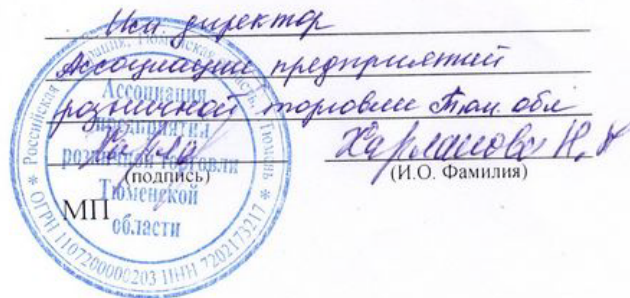 Исп. директор
Ассоциации предприятий
розничной торговли Тюм. обл
(подпись)
(И.О. Фамилия)
МП
Ассоциация
предприятий
розничной торговли
Тюменской
области
ОГРН 1107200000203 ИНН 7202173217